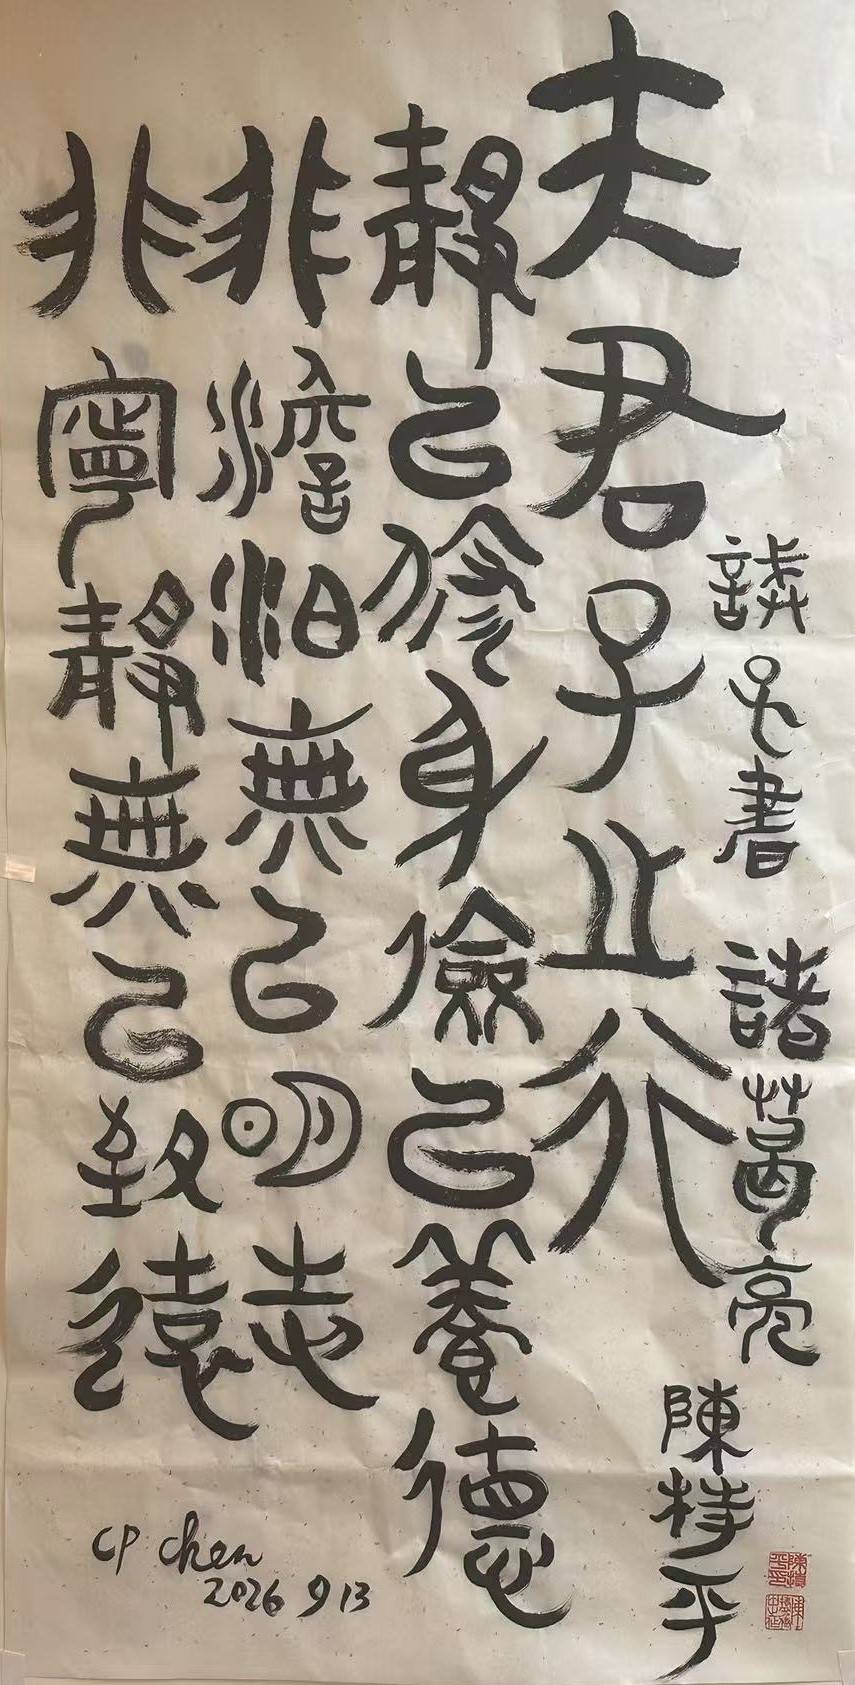 誡子書 諸葛亮
陳持平
夫君子之行
靜以修身儉以養德
非澹泊無以明志
非寧靜無以致遠
CP Chen
2026 9 13